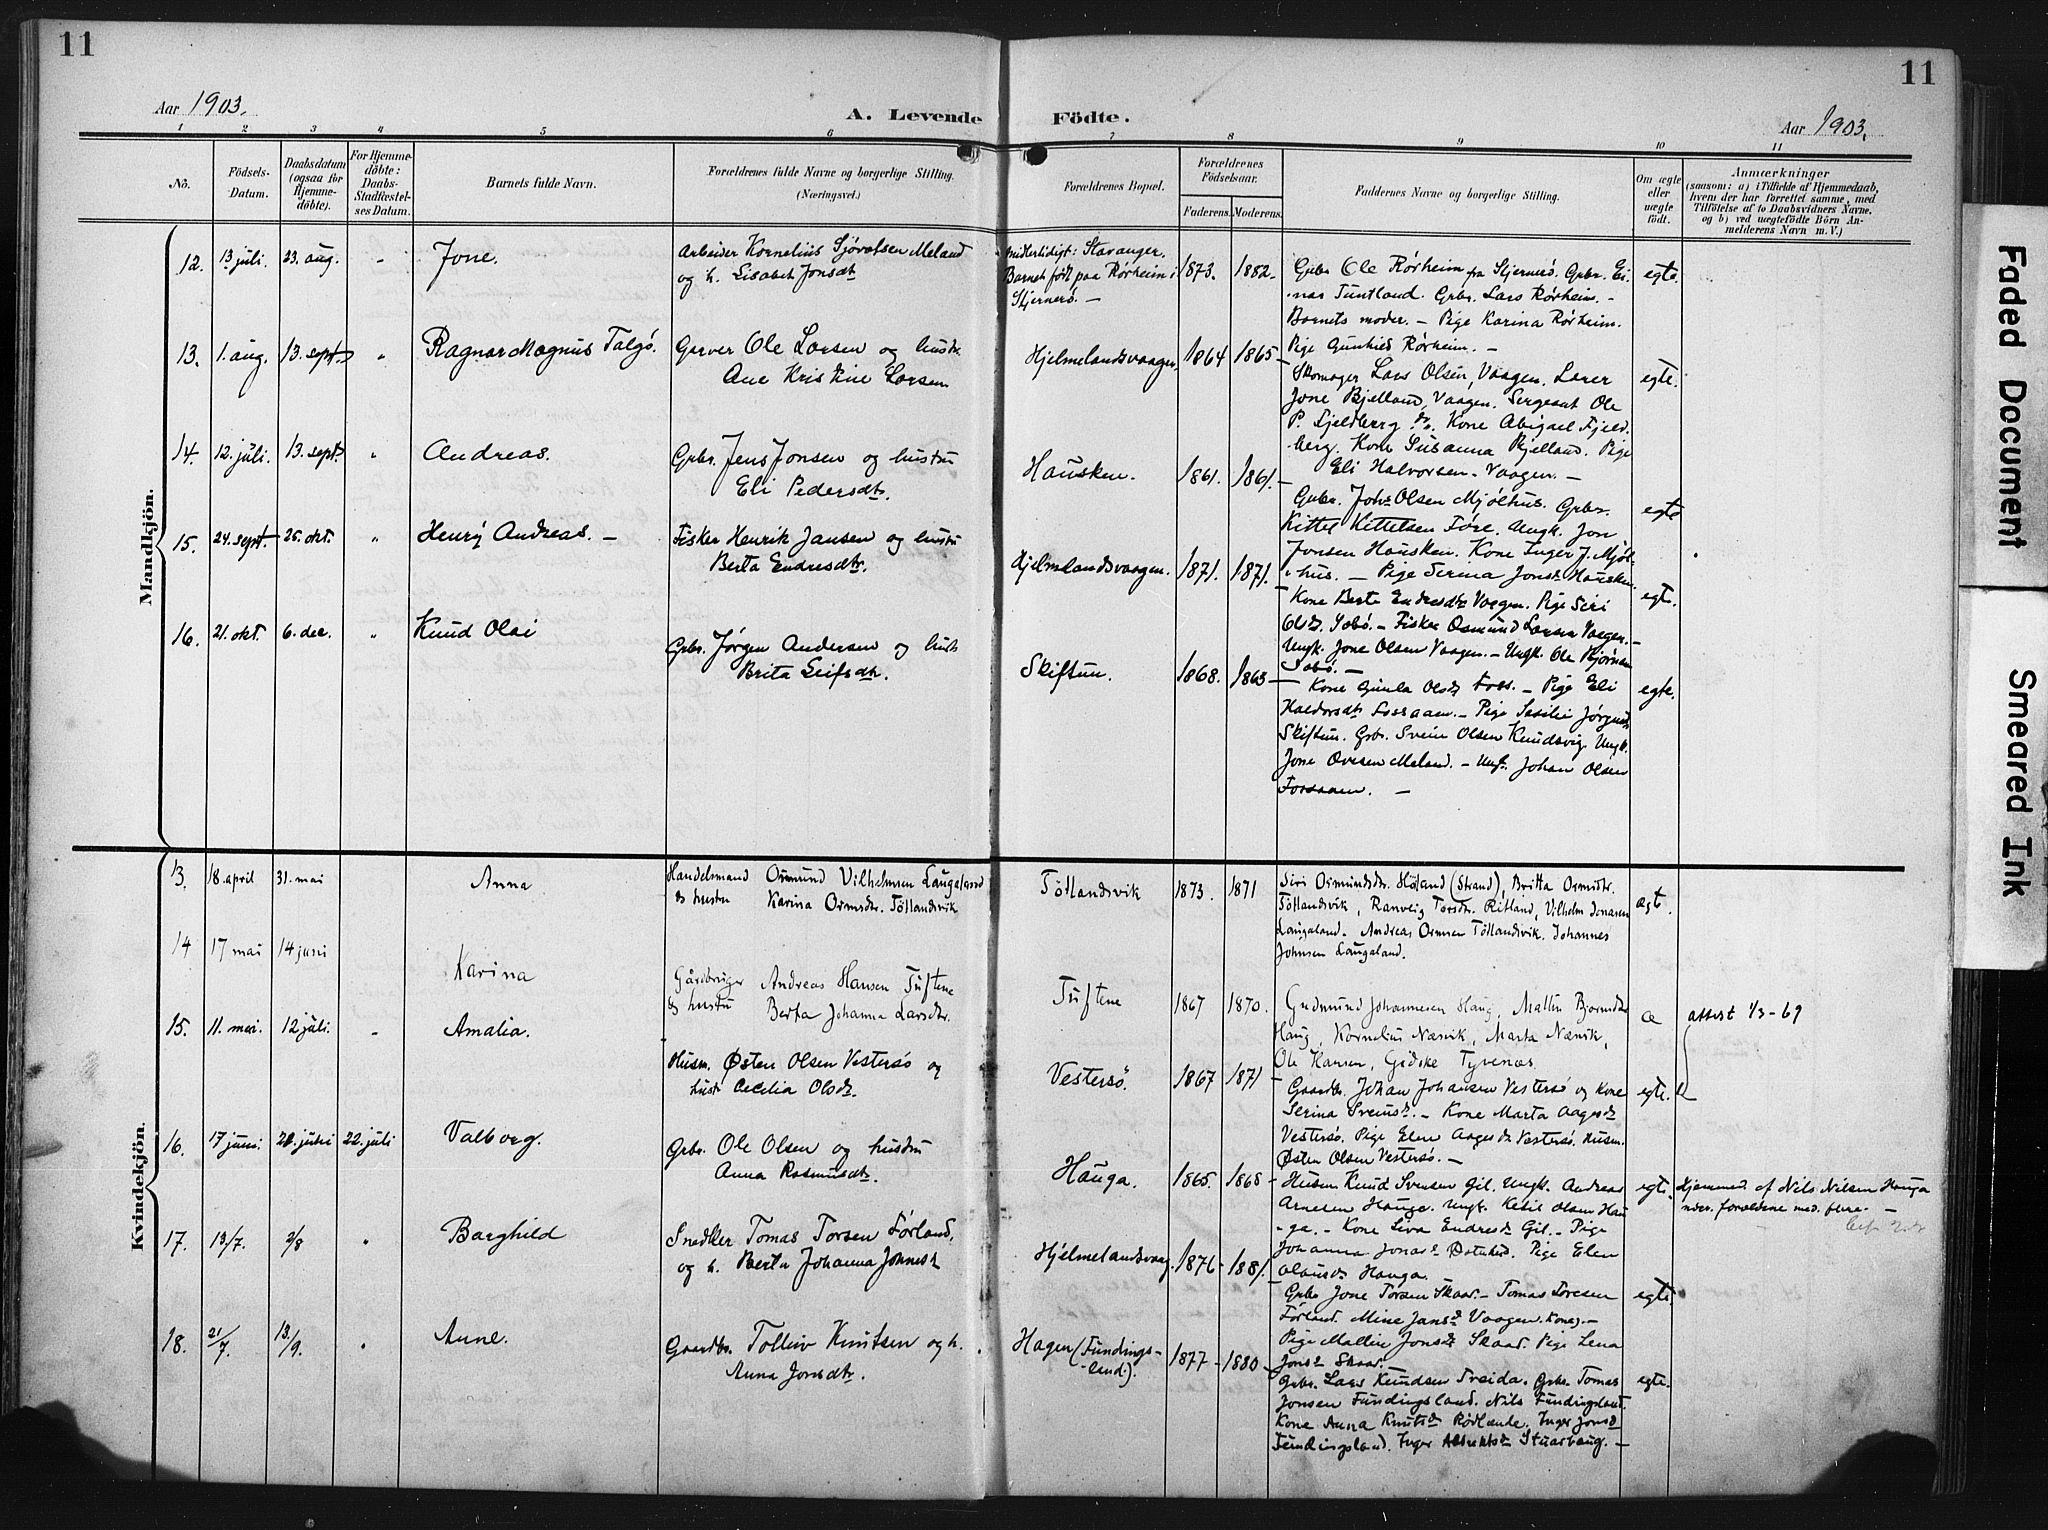 11
11
Aar 1903.
A. Levende Födte.
Aar 1903.
1 2 3 4 5 6 7 8 9 10 11
No.
Födsels-
Datum.
Daabsdatum
(ogsaa for
Hjemme-
döbte).
For Hjemme-
döbte:
Daabs-
Stadfæstel-
ses Datum.
Barnets fulde Navn.
Forældrenes fulde Navne og borgerlige Stilling.
(Næringsvei.)
Forældrenes Bopæl.
Forældrenes
Födselsaar.
Faderens. Moderens.
Faddernes Navne og borgerlige Stilling.
Om ægte
eller
uægte
födt.
Anmærkninger
(saasom: a) i Tilfælde af Hjemmedaab,
hvem der har forrettet samme, med
Tilföielse af to Daabsvidners Navne.
og b) ved uægtefödte Börn An-
melderens Navn m. V.)
Mandkjön.
12. 13 juli. 23. aug. - Jone.
Arbeider Kornelius Sjövatsen Meland
og h. Lisabet Jonsdt
Midlertidigt: Stavanger.
Barnet født paa Rörheim i
Stjernerö. -
1873. 1882.
Grbr Ole Rörheim fra Stjernerö. Grbr. Ei-
nar Tuntland. Grbr. Lars Rørheim. -
Barnets moder. - Pige Karina Rörheim.
Pige Gunhild Rørheim. -
egte.
13. 1. aug. 13. sept. " Ragnar Magnus Talgö.
Garver Ole Larsen og hustr.
Ane Kristine Larsen
Hjelmelandsvaagen. 1864 1865 -
Skomager Lars Olsen, Vaagen. Lærer
Jone Bjelland, Vaagen. Sergeant Ole
P. Fjeldberg do. Kone Abigael Fjeld-
berg. Kone Susanna Bjelland. Pige
Eli Halvorsen - Vaagen. -
egte.
14. 12. juli. 13. sept. " Andreas.
Grbr. Jens Jonsen og hustru
Eli Pedersdtr.
Hausken. 1861. 1861. -
Grbr. Johs Olsen Mjølhus. Grbr.
Kittel Kittelsen Føre. Ungk. Jon
Jonsen Hausken. Kone Inger J. Mjöl-
hus. - Pige Serina Jonsd. Hausken.
egte
15. 24. sept. 25. okt. " Henrÿ Andreas. -
Fisker Henrik Jansen og hustru
Berta Endresdtr.
Hjelmelandsvaagen. 1871. 1871. -
Kone Berte Endresdt Vaagen. Pige Siri
Olsd. Sobö. - Fisker Osmund Larsen Vaagen. -
Ungk. Jone Olsen Vaagen. - Ungk. Ole Bjørnsen
Sobö. -
egte.
16. 21. okt. 6. dec. " Knud Olai
Grbr. Jørgen Andersen og hust
Brita Leifsdtr.
Skiftun. 1868. 1863 -
Kone Gunla Olsdt Foss. - Pige Eli
Haldorsdt Fossaaen. - Pige Sesilie Jørgensd.
Skiftun. Grbr. Svein Olsen Knudsvig. Ungk.
Jone Ovesen Meland. - Ungk. Johan Olsen
Forsaaen. -
egte.
Kvindekjön.
13. 18. april 31. mai Anna
Handelsmand Osmund Vilhelmsen Laugaland
& hustru Karina Ormsdtr. Töllandsvik
Töllandsvik 1873. 1871
Siri Osmundsdtr. Høland (Strand), Britta Ormsdtr.
Töllandsvik, Ranveig Torsdr. Ritland, Vilhelm Jonasen
Laugaland. Andreas Ormsen Töllandsvik. Johannes
Johnsen Laugaland.
ægt.
14 17 mai 14 juni Karina
Gårdbruger Andreas Hansen Tuftene
& hustru Berta Johanna Larsdtr.
Tuftene 1867 1870.
Gudmund Johannesen Haug, Mallin Bjørnsdtr
Haug, Kornelius Næsvik, Marta Næsvik,
Ole Hansen, Gidske Tyvenæs
æ
attest 1/3-69
15. 11. mai. 12 juli. - Amalia.
Husm. Østen Olsen Vestersö og
hust Cecilia Olsdtr.
Vestersö. 1867 1871
Gaardbr. Johan Johansen Vestersö og Kone
Serina Svensd. - Kone Marta Aagesdt
Vestersö. Pige Elen Aagesdt Vestersö. Husm.
Østen Olsen Vestersö. -
egte.
16. 17 juni. 21. juni 22. juli Valborg.
Grbr. Ole Olsen og hustru
Anna Rasmusdtr.
Hauga. 1865. 1868 -
Husm Knud Svensen Gil. Ungk. Andreas
Arnesen Hauge. Ungk. Ketil Olsen Hau
ga. - Kone Liva Endresdt Gil. - Pige
Johanna Jonasd Østuhed. Pige Elen
Olausdt Hauga.
egte.
Hjemmed. af Nils Nilsen Hauga
nder. forældene med flere -
17. 13/7. 2/8 " Borghild
Snedker Tomas Torsen Førland.
og h. Berta Johanna Johnsdt
Hjelmelandsvaag. 1876 - 1881.
Grbr Jone Torsen Skaar. - Tomas Toresen
Førland. Mine Jansdt Vaagen. Kone). -
Pige Mallin Jonsdt Skaar. Pige Lena
Jonsd Skaar.
egte.
18. 21/7. 13/9. " Anne.
Gaardbr. Tolleiv Knutsen og h.
Anna Jonsdtr.
Hagen (Fundings-
land.). 1877 - 1880
Grbr. Lars Knudsen Treida. Grbr. Tomas
Jonsen Fundingsland. Nils Fundingsland.
Kone Anna Knutsdt Rödlende. Inger Jonsdt
Fundingsland. Inger Albrektsdt Stuarhaug. -
egte.
Faded Document
Smeared Ink